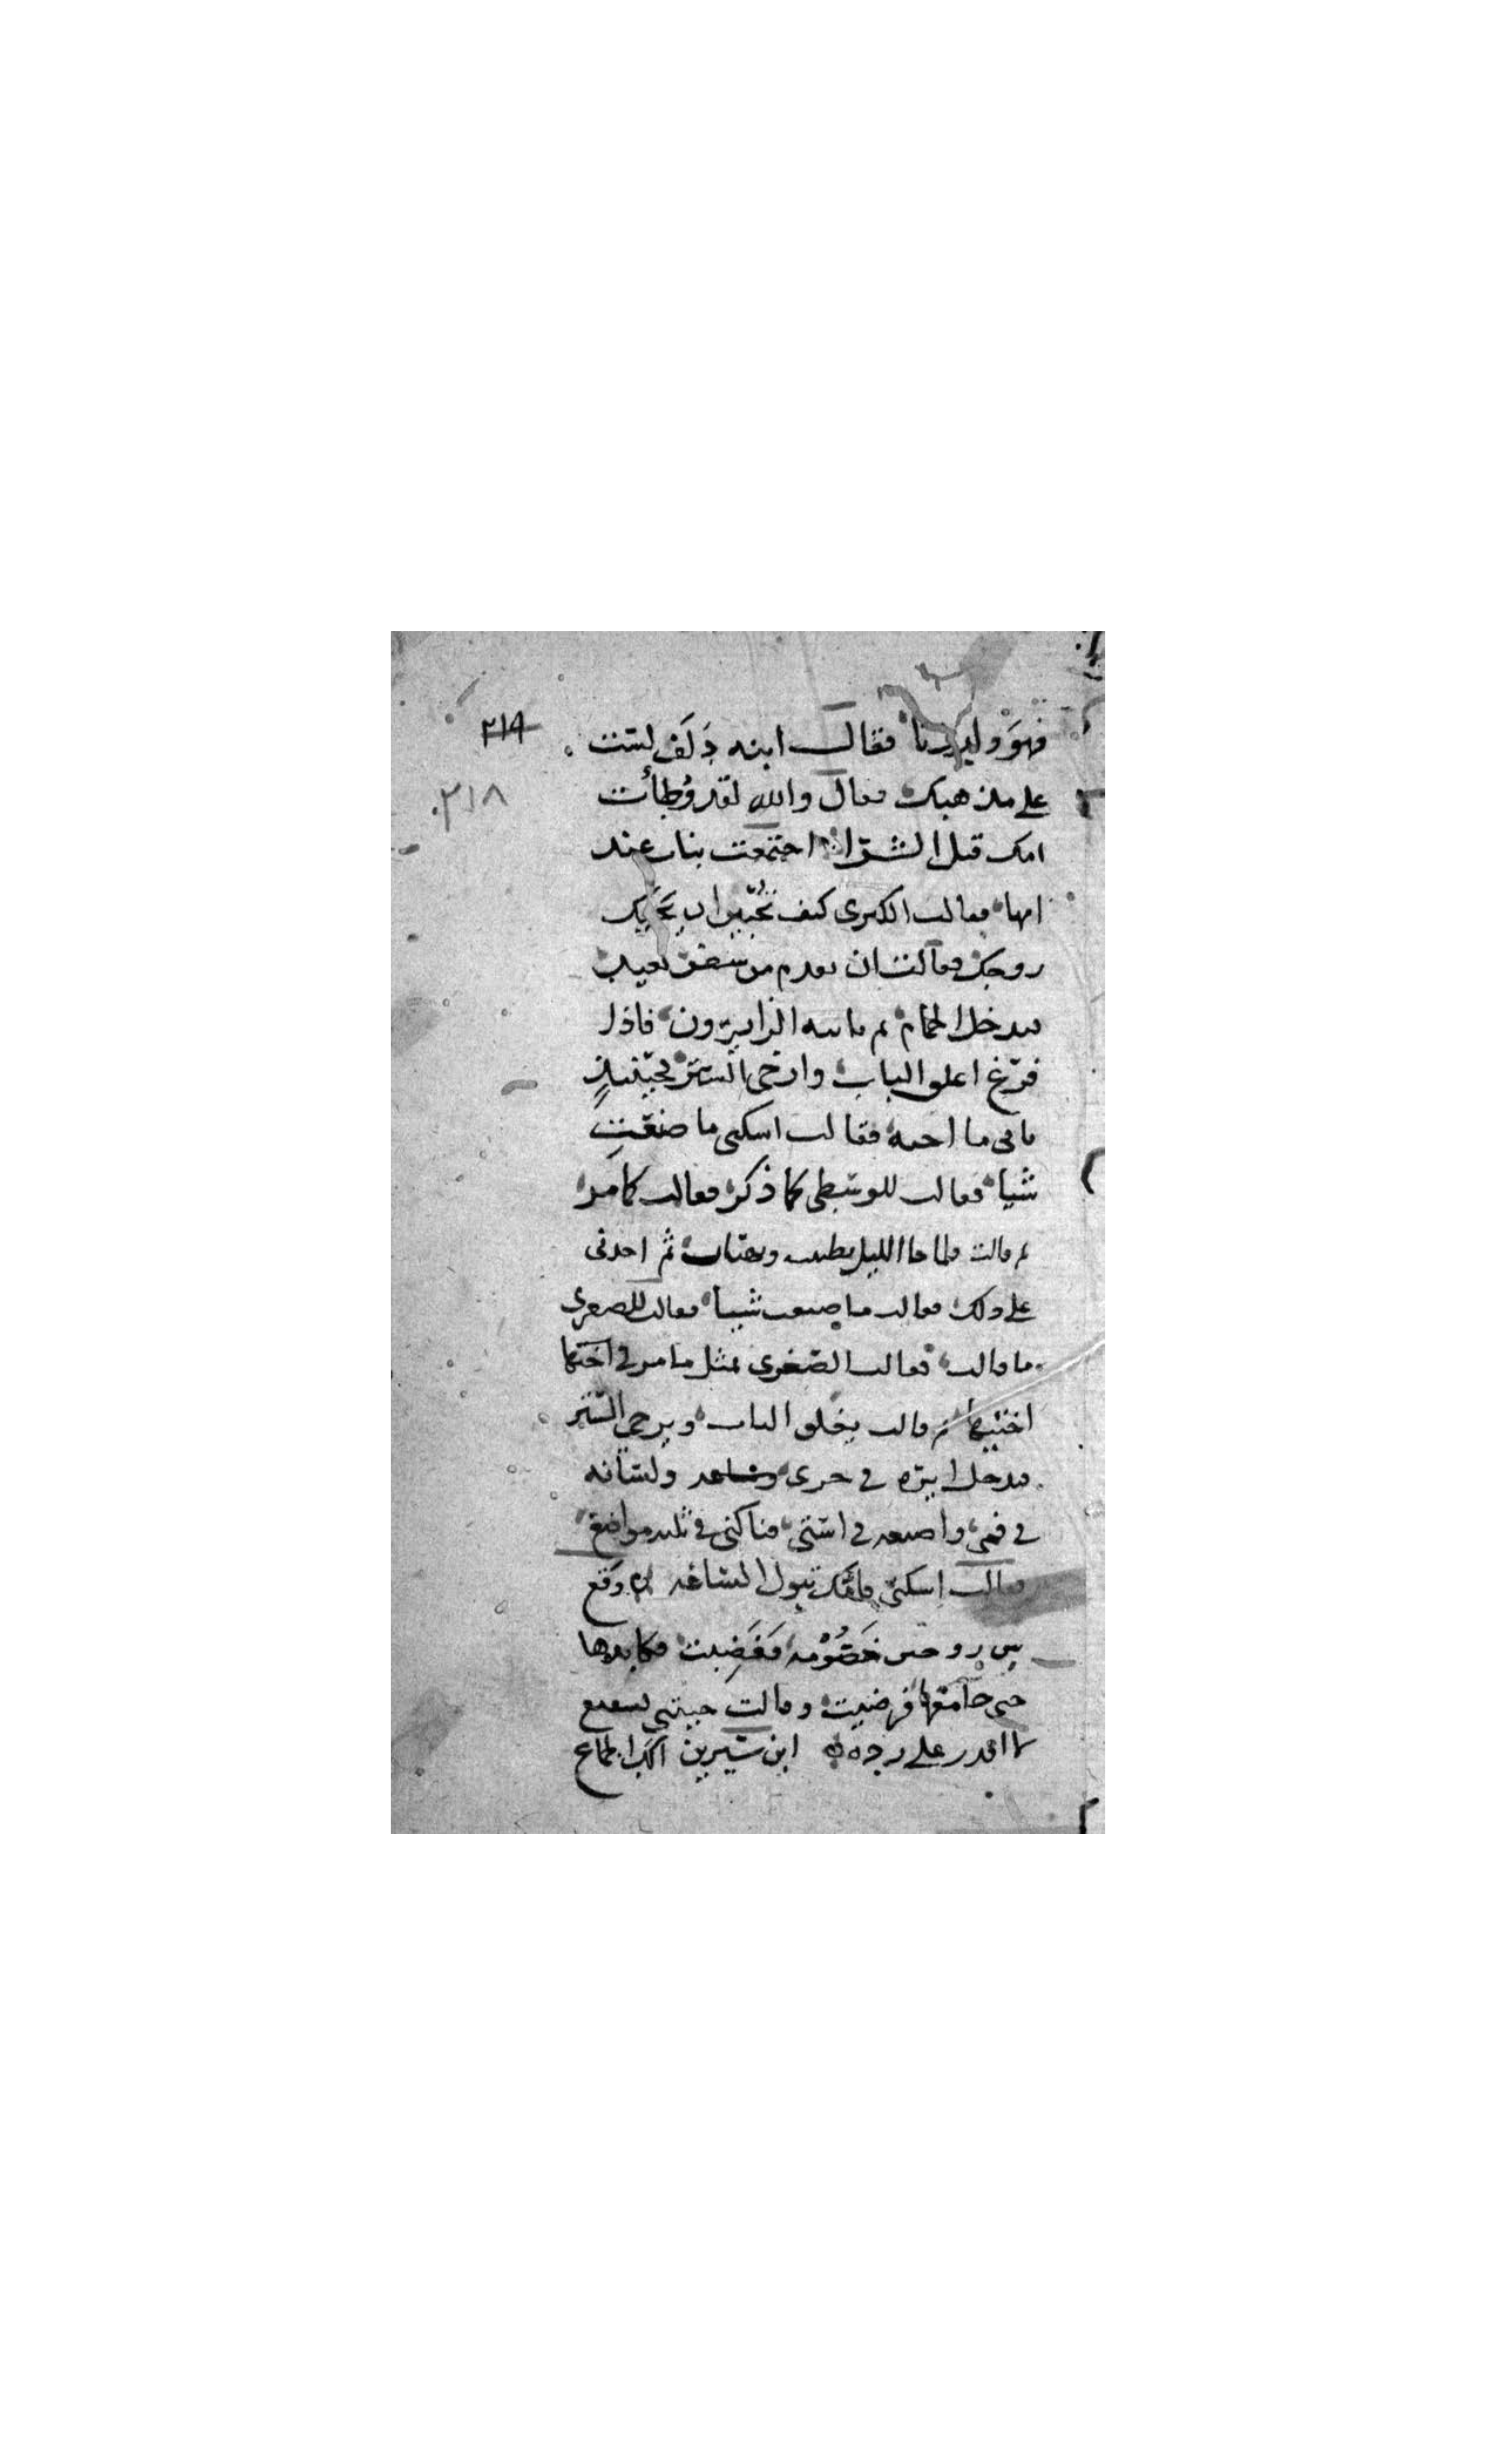 فهو وليد زنا فقال ابنه دلف لست
٢١٩
على مذهبك فقال والله لقد وطأت
٢١٨
امك قبل الشرا اجتمعت بنات عند
امها فقالت الكبرى كيف تحبين ان
زوجك فقالت ان يقدم من سفر
فيدخل الحمام ثم ياتيه الزايرون فاذا
فرغ اغلق الباب وارخى الستر فحينئذ
ياتى ما احبه فقالت اسكتى ما صنعت
شيا فقالت للوسطى كما ذكر فقالت كما مر
ثم قالت فلما جا الليل ثم اخذنى
على ذلك فقالت ما صنعت شيا فقالت للصغرى
ما قالت فقالت الصغرى بمثل ما مر فى اختها
اختيها ثم قالت يغلق الباب ويرخى الستر
فيدخل ايره فى حرى ولسانه
فى فمى واصبعه فى استى فناكنى فى ثلثه مواضع
فقالت اسكتى فامك تبول الساعه وقع
بين زوجين خصومه فغضبت
حتى جامعها فرضيت وقالت جيتنى بشفيع
لا اقدر على رده ابن سيرين الجماع